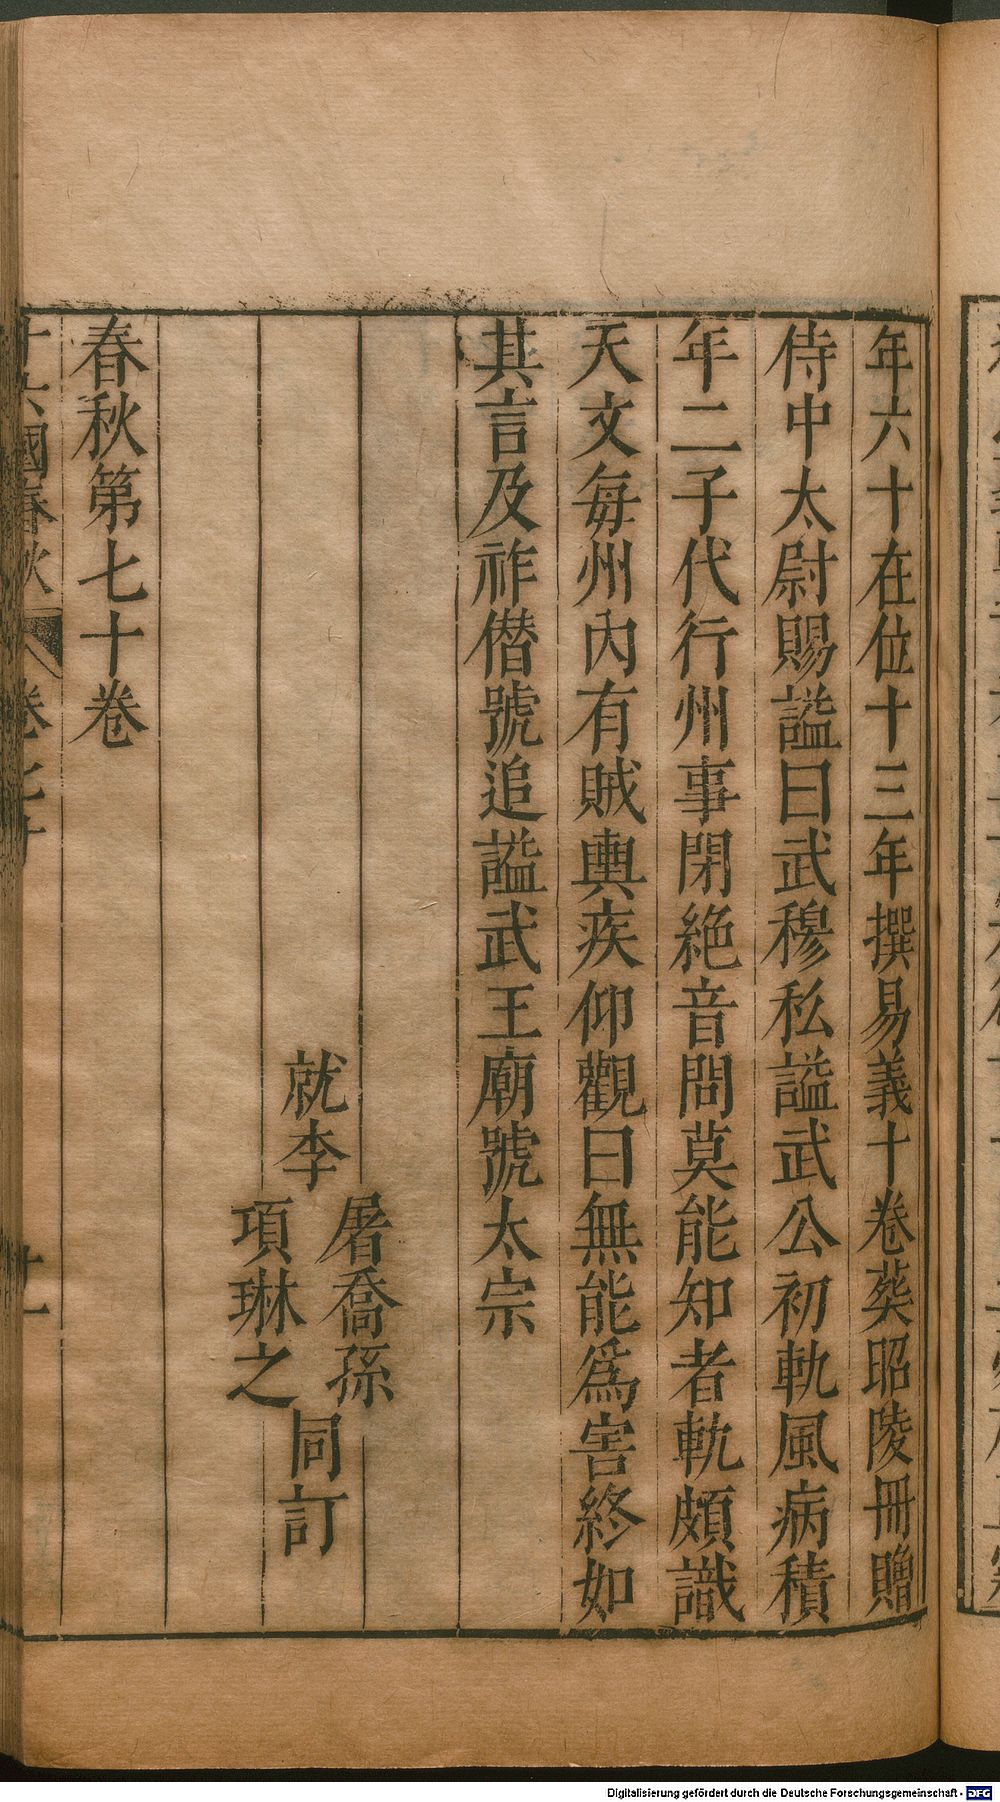 年六十在位十三年撰易義十卷葬昭陵冊贈
侍中太尉賜謚曰武穆私謚武公初軌風病積
年二子代行州事閉絶音問莫能知者軌頗識
天文每州內有賊輿疾仰觀曰無能爲害終如
其言及祚僣號追謚武王廟號太宗
屠喬孫
就李
同訂
項琳之
春秋第七十卷
十六國春秋
卷七十
Digitalisierung gefördert durch die Deutsche Forschungsgemeinschaft - DFG